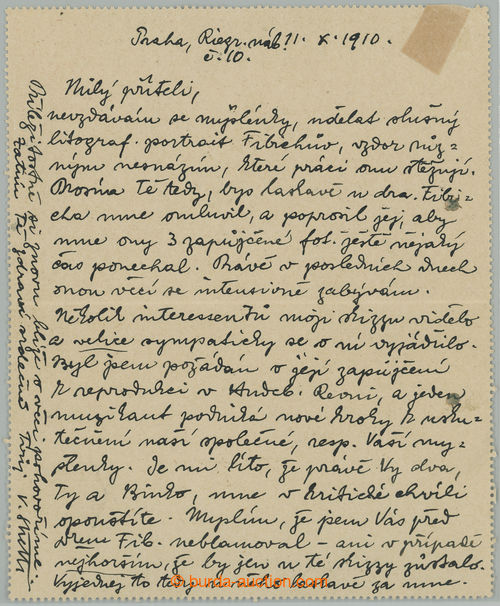 Praha, Riegr. náb. 11. X. 1910.
č. 10.
Milý příteli,
nevzdávám se myšlénky, udělat slušný
litograf. portrait Fibichův, vzdor růz=
ným nesnázím, které práci onu stěžují.
Prosím Tě tedy, bys laskavě u dra. Fibi=
cha mne omluvil, a poprosil jej, aby
mne ony 3 zapůjčené fot. ještě nějaký
čas ponechal. Právě v posledních dnech
onou věcí se intensivně zabývám.
Několik interessentů moji skizzu vidělo
a velice sympaticky se o ní vyjádřilo.
Byl jsem požádán o její zapůjčení
k reprodukci v Hudeb. Revui, a jeden
muzikant podniká nové kroky k usku=
tečnění naší společné, resp. Vaší my=
šlenky. Je mi líto, že právě Vy dva,
Ty a Binko, mne v kritické chvíli
opouštíte. Myslím, že jsem Vás před
drem Fib. neblamoval – ani v případě
nejhorším, že by jen u té skizzy zůstalo.
Vyjednej to tedy laskavě za mne.
Příležitostně si znovu blíže o věci pohovoříme.
Zatím Tě zdraví srdečně Tvůj V.
burda-auction.com